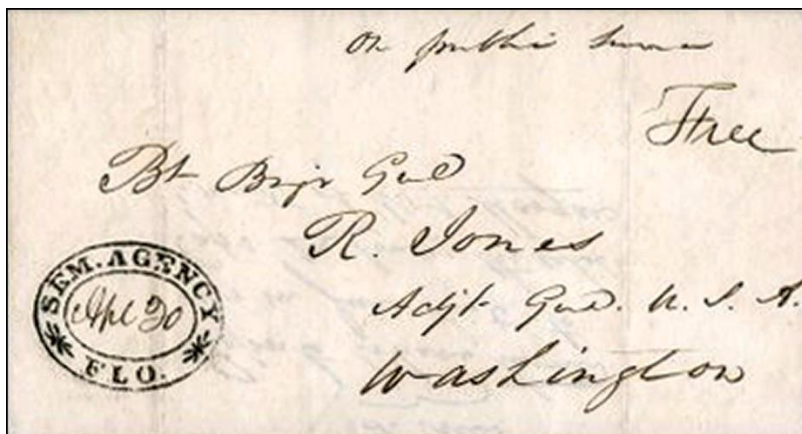 On public service
Free
Bt Brigr Genl
R. Jones
Adjt Genl. U. S. A.
Washington
SEM. AGENCY
Apl 20
FLO.